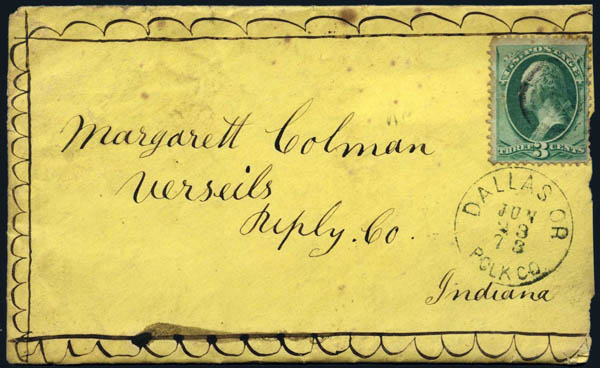 U.S. POSTAGE
THREE 3 CENTS
Margarett Colman
Verseils
Riply. Co.
Indiana
DALLAS OR
JUN
23
78
POLK CO.